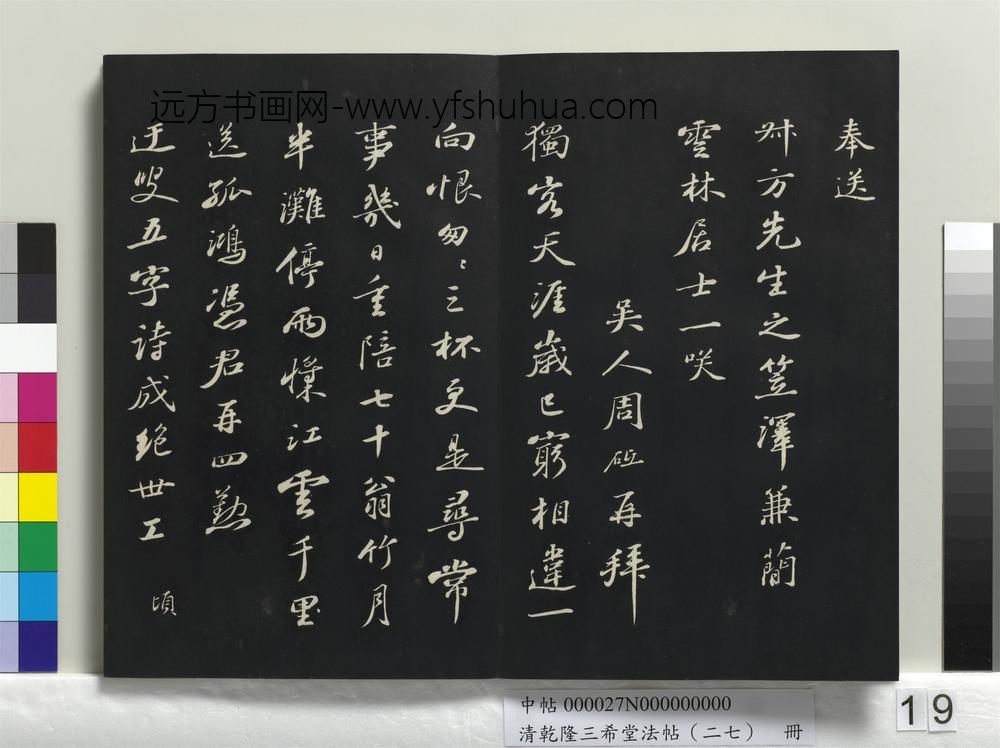 远方书画网-www.yfshuhua.com
奉送
艸方先生之笠澤兼蕳
雲林居士一咲
吴人周砥再拜
獨客天涯歳已窮相違一
向恨匆〻三杯更是尋常
事幾日重陪七十翁竹月
半灘停雨檏江雲千里
送孤鴻憑君再四勲
迂叟五字詩成絶世工 頃
中帖 000027N000000000
清乾隆三希堂法帖（二七） 冊
19